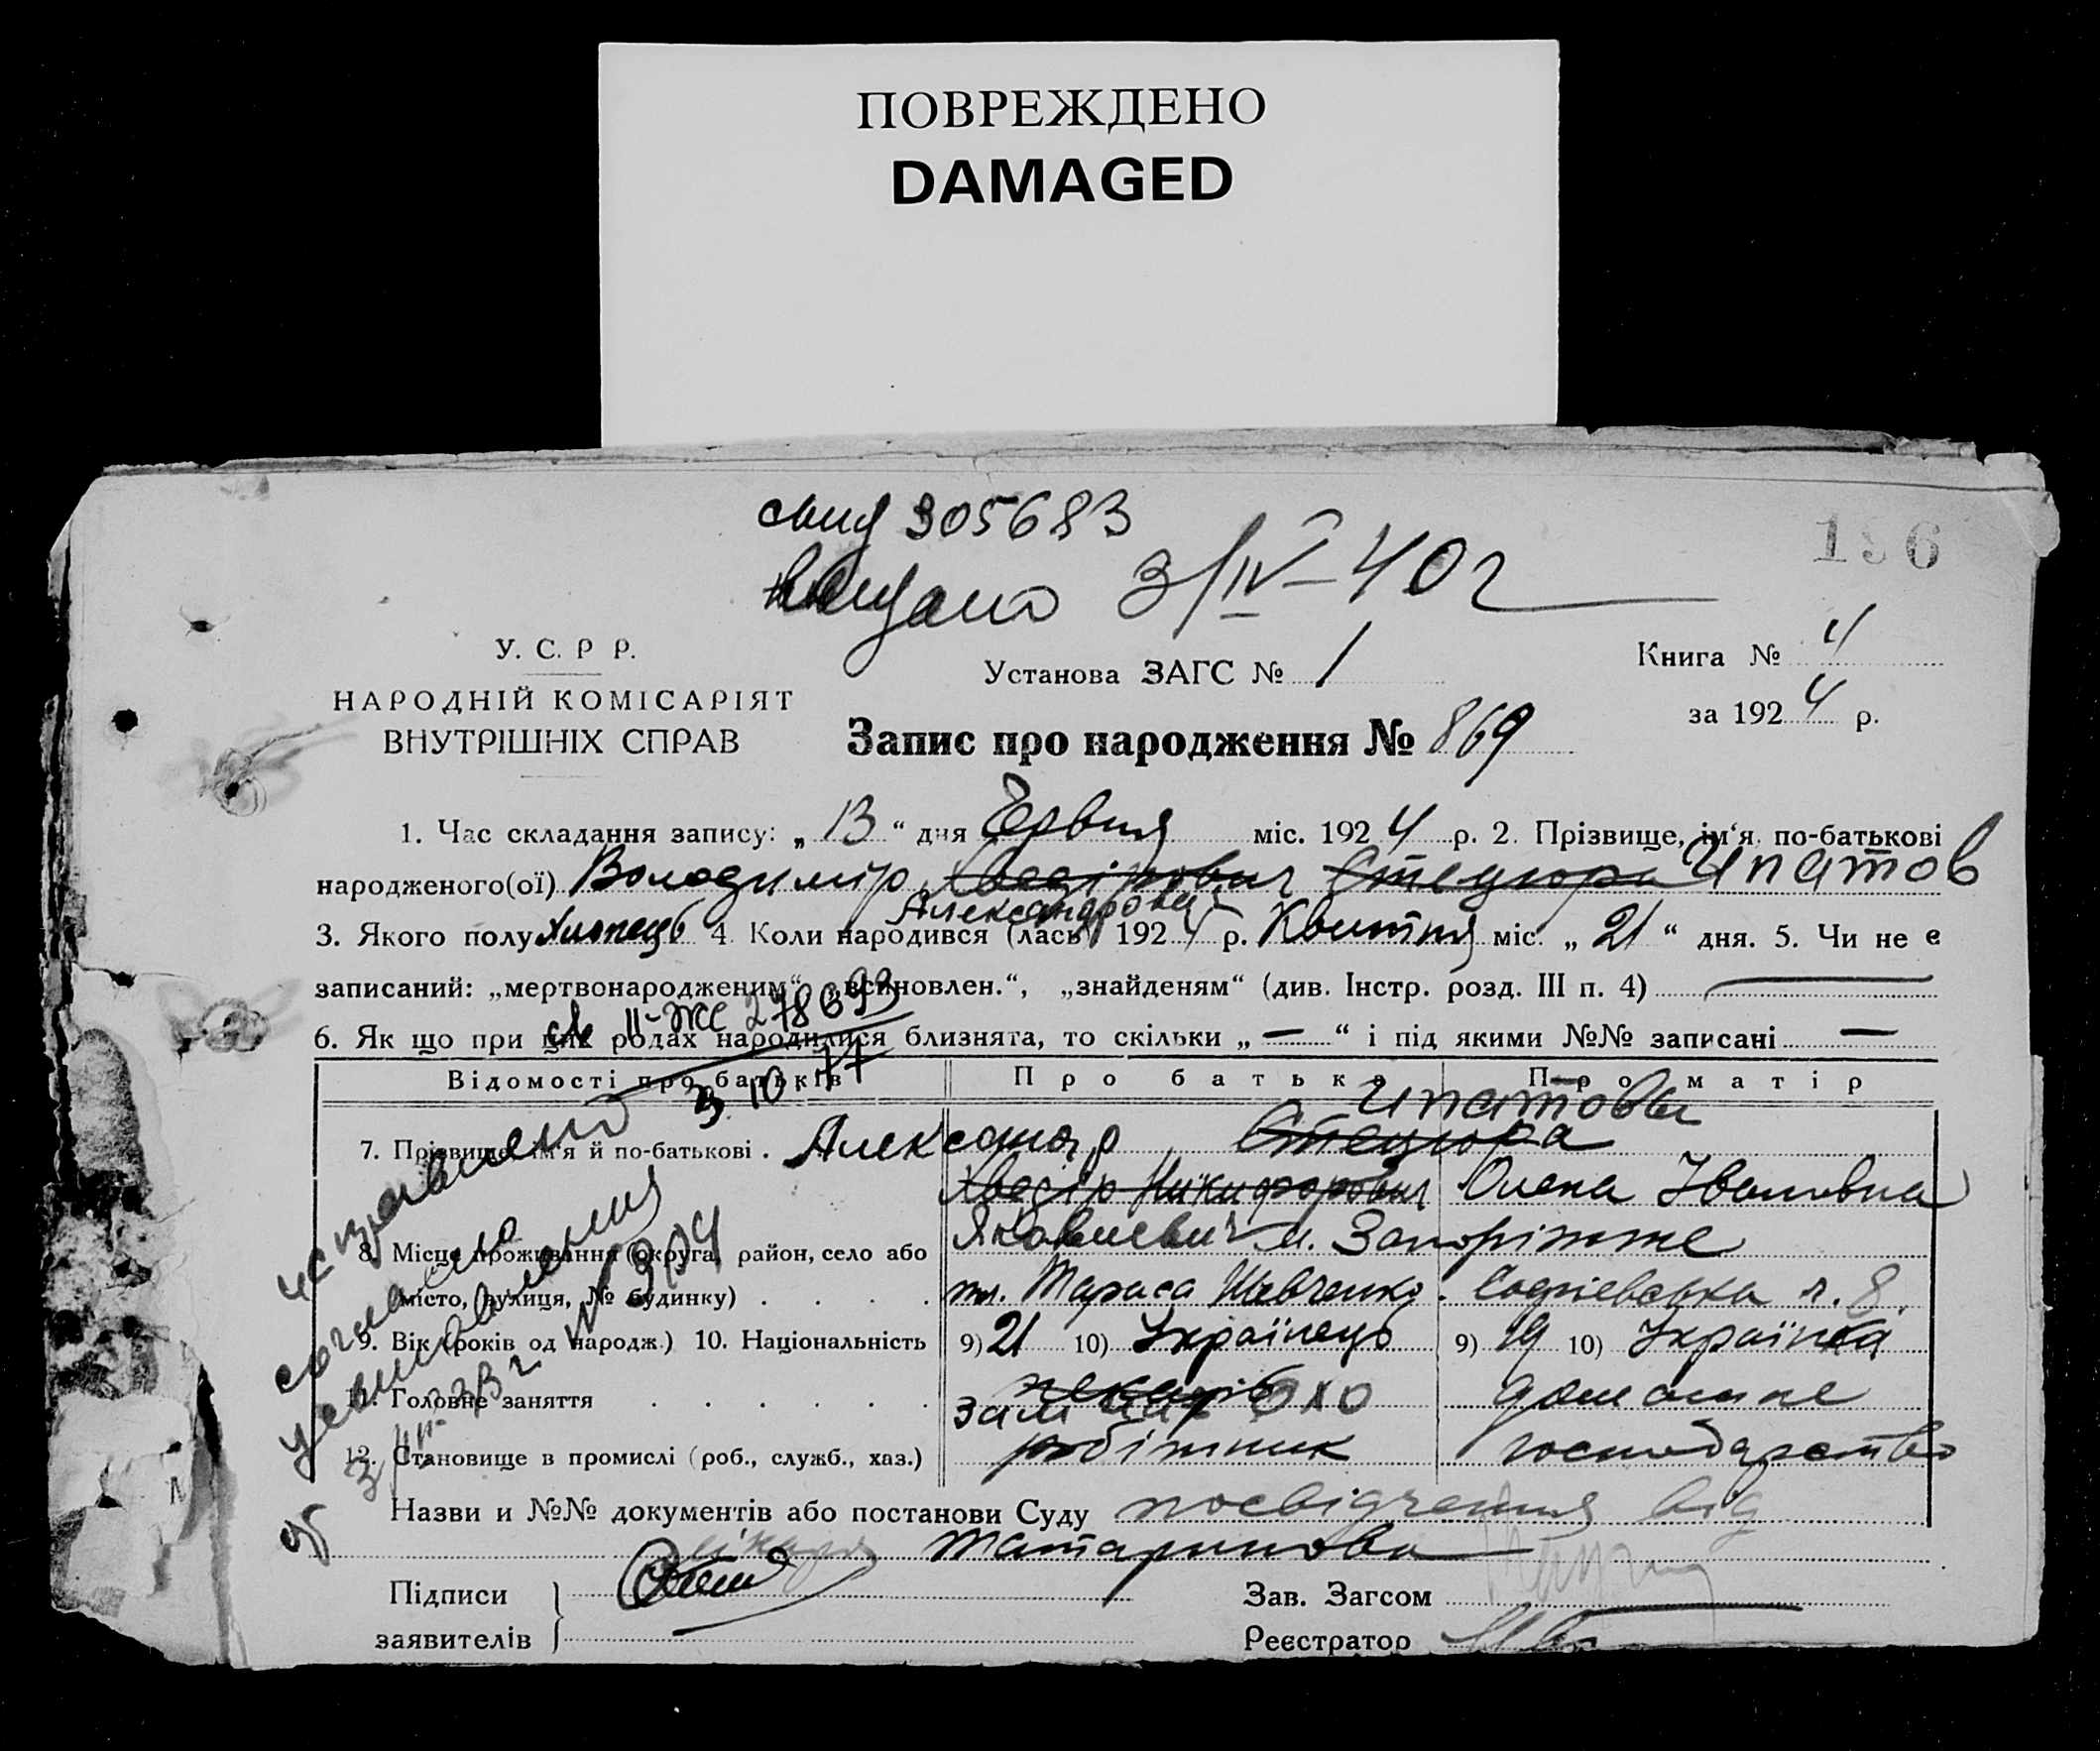 ПОВРЕЖДЕНО
DAMAGED
свид 305683
выдано 3/IV-40г
196
У. С. Р Р.
НАРОДНІЙ КОМІСАРІЯТ
ВНУТРІШНІХ СПРАВ
Установа ЗАГС № 1
Книга № 4
за 1924 р.
Запис про народження № 869
1. Час складання запису: „13“ дня Червня міс. 1924 р. 2. Прізвище, ім‘я, по-батькові
народженого(ої) Володимір Хведірович Стецюра Ипатов
Александрович
3. Якого полу хлопець 4. Коли народився (лась) 1924 р. Квітня міс. „21“ дня. 5. Чи не є
записаний: „мертвонародженим“ „всиновлен.“, „знайденям“ (див. Інстр. розд. III п. 4)
св II-ЖС 278693
6. Як що при цих родах народилися близнята, то скільки „—“ і під якими №№ записані —
3 10 77
Відомості про батьків Про батька Про матір
Ипатова
7. Прізвище, ім‘я й по-батькові . Александр Стецюра
Хведір Никифорович Олена Івановна
Яковлевич м. Запоріжже
8. Місце проживання (округа, район, село або
місто, вулиця, № будинку) . . . . пл. Тараса Шевченко. л. 8.
9. Вік (років од народж.) 10. Національність 9) 21 10) Українець 9) 19 10) Українка
11. Головне заняття . . . . . . домашнє
12. Становище в промислі (роб., служб., хаз.) робітник господарство
исправлено
согласно
усыновления
№ 304
Назви и №№ документів або постанови Суду посвідчення від
лікаря Татаринова
Підписи
заявителів
Зав. Загсом
Реєстратор